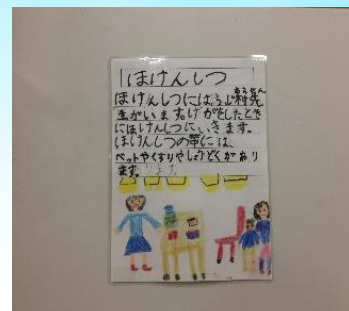 ほけんしつ
ほけんしつには、
生がいますけがをしたとき
にほけんしつにいきます。
ほけんしつの中には、
ベットやくすりやしょうどくがあり
ます。